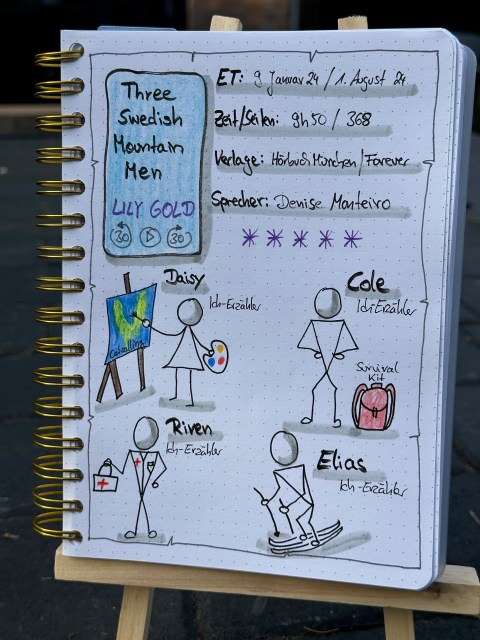 Three
Swedish
Mountain
Men
LILY GOLD
30 30
ET: 9 Januar 24 / 1. August 24
Zeit/Seiten: 9h50 / 368
Verlage: Hörbuch München / Forever
Sprecher: Denise Monteiro
Daisy
Ich-Erzähler
Cole
Ich-Erzähler
Survival
Kit
Riven
Ich-Erzähler
Elias
Ich-Erzähler